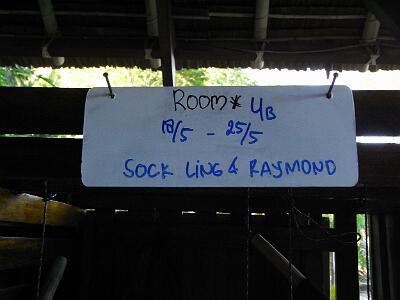 ROOM* 4B
18/5 - 25/5
SOCK LING & RAYMOND